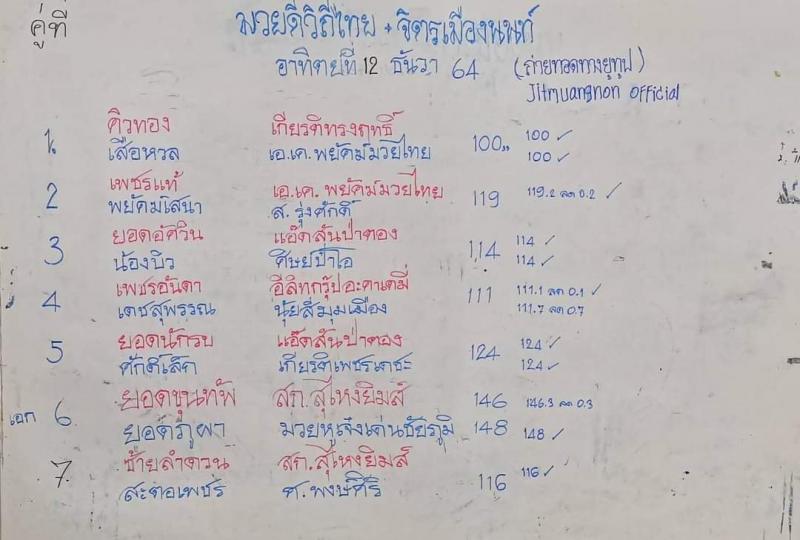 คู่ที่ มวยดีวิถีไทย + จิตรเมืองนนท์
อาทิตย์ที่ 12 ธันวา 64 (ถ่ายทอดทางยูทูป)
Jitmuangnon Official
1. คิวทอง เกียรติทรงฤทธิ์ 100 100 ✓
เสือหวล เอ.เค. พยัคฆ์มวยไทย 100 ✓
2 เพชรแท้ เอ.เค. พยัคฆ์มวยไทย 119 119.2 ลด 0.2 ✓
พยัคฆ์เสนา ส. รุ่งศักดิ์
3 ยอดอัศวิน แอ๊ดสันป่าตอง 114 114 ✓
น้องบิว ศิษย์ป๋าโอ 114 ✓
4 เพชรอันดา อีลิทกรุ๊ปอะคาเดมี่ 111 111.1 ลด 0.1 ✓
เดชสุพรรณ นุ้ยสี่มุมเมือง 111.7 ลด 0.7
5 ยอดนักรบ แอ๊ดสันป่าตอง 124 124 ✓
ศักดิ์เล็ก เกียรติเพชรเดชะ 124 ✓
เอก 6 ยอดขุนทัพ สก.สุไหงยิมส์ 146 146.3 ลด 0.3
ยอดภูผา มวยหูเจ๊งเด่นชัยภูมิ 148 148 ✓
7 ซ้ายลำดวน สก.สุไหงยิมส์ 116 116 ✓
สะตอเพชร ศ.พงษ์ศิริ